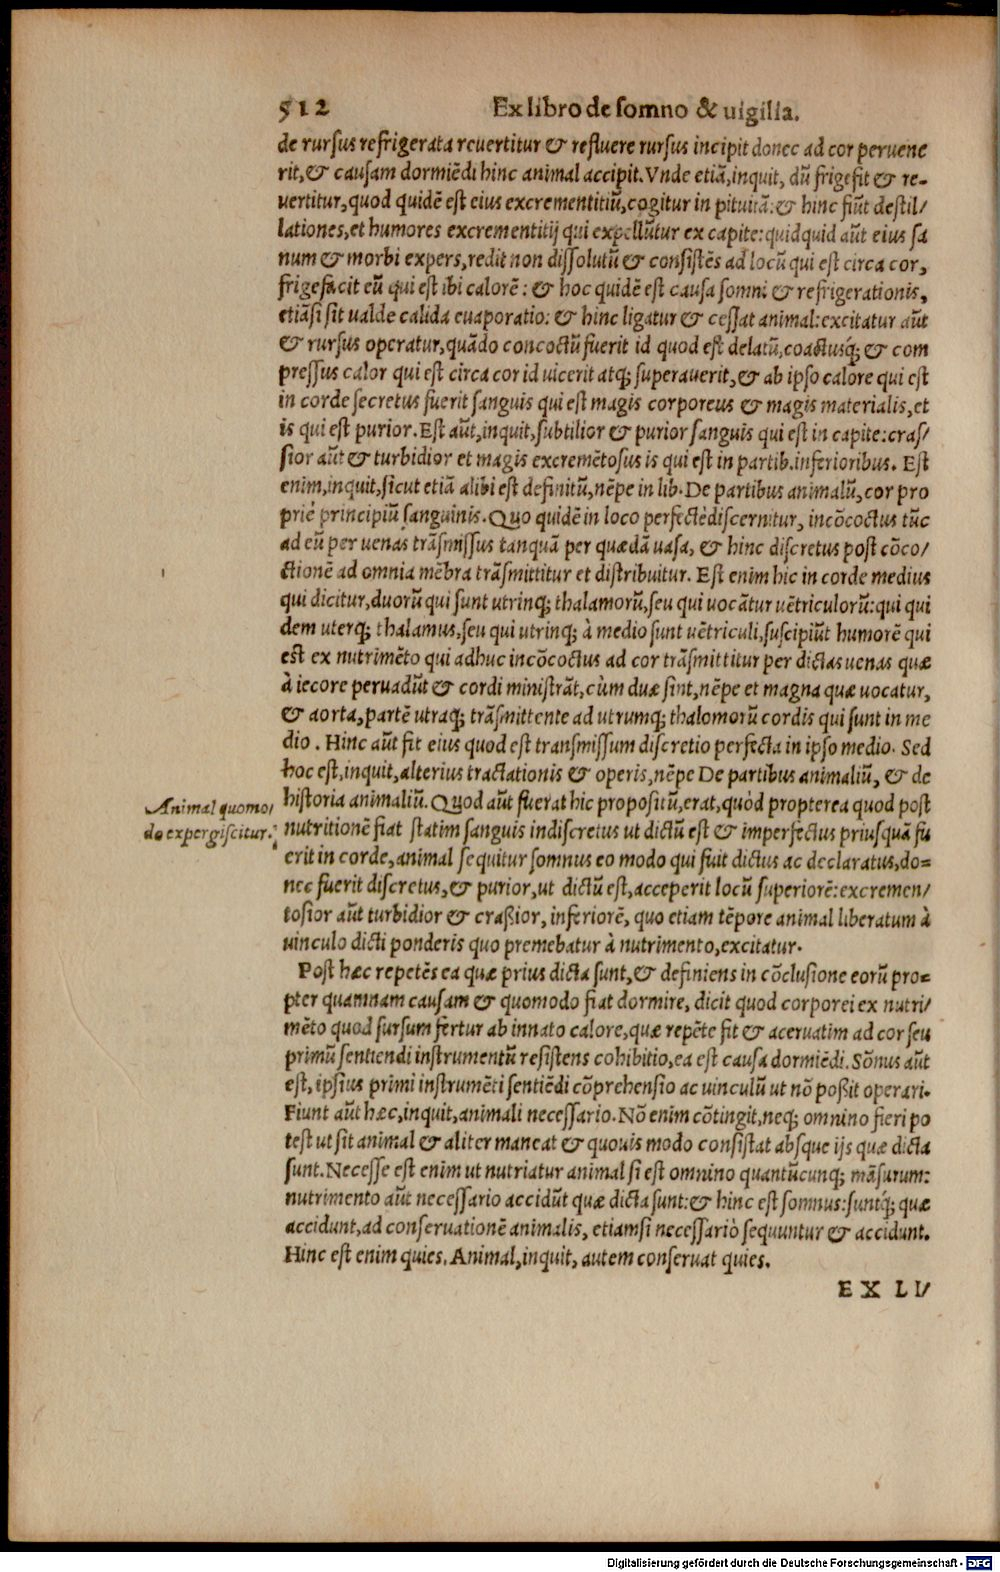 512 Ex libro de somno & uigilia.
de rursus refrigerata reuertitur & refluere rursus incipit donec ad cor peruene
rit, & causam dormiēdi hinc animal accipit. Vnde etiā, inquit, dū frigefit & re-
uertitur, quod quidē est eius excrementitiū, cogitur in pituitā: & hinc fiūt destil/
lationes, et humores excrementitij qui expellūtur ex capite: quidquid aūt eius sa
num & morbi expers, redit non dissolutū & consistēs ad locū qui est circa cor,
frigefacit eū qui est ibi calorē: & hoc quidē est causa somni & refrigerationis,
etiāsi sit ualde calida euaporatio: & hinc ligatur & cessat animal: excitatur aūt
& rursus operatur, quādo concoctū fuerit id quod est delatū, coactusq; & com
pressus calor qui est circa cor id uicerit atq; superauerit, & ab ipso calore qui est
in corde secretus fuerit sanguis qui est magis corporeus & magis materialis, et
is qui est purior. Est aūt, inquit, subtilior & purior sanguis qui est in capite: cras/
sior aūt & turbidior et magis excremētosus is qui est in partib. inferioribus. Est
enim, inquit, sicut etiā alibi est definitū, nēpe in lib. De partibus animalū, cor pro
priè principiū sanguinis. Quo quidē in loco perfectè discernitur, incōcoctus tūc
ad eū per uenas trāsmissus tanquā per quædā uasa, & hinc discretus post cōco/
ctionē ad omnia mēbra trāsmittitur et distribuitur. Est enim hic in corde medius
qui dicitur, duorū qui sunt utrinq; thalamorū, seu qui uocātur uētriculorū: qui qui
dem uterq; thalamus, seu qui utrinq; à medio sunt uētriculi, suscipiūt humorē qui
est ex nutrimēto qui adhuc incōcoctus ad cor trāsmittitur per dictas uenas quæ
à iecore peruadūt & cordi ministrāt, cùm duæ sint, nēpe et magna quæ uocatur,
& aorta, partē utraq; trāsmittente ad utrumq; thalomorū cordis qui sunt in me
dio. Hinc aūt fit eius quod est transmissum discretio perfecta in ipso medio. Sed
hoc est, inquit, alterius tractationis & operis, nēpe De partibus animaliū, & de
historia animaliū. Quod aūt fuerat hic propositū, erat, quòd propterea quod post
nutritionē fiat statim sanguis indiscretus ut dictū est & imperfectus priusquā fu
erit in corde, animal sequitur somnus eo modo qui fuit dictus ac declaratus, do=
nec fuerit discretus, & purior, ut dictū est, acceperit locū superiorē: excremen/
tosior aūt turbidior & craßior, inferiorē, quo etiam tēpore animal liberatum à
uinculo dicti ponderis quo premebatur à nutrimento, excitatur.
Animal quomo/
do expergiscitur.
Post hæc repetēs ea quæ prius dicta sunt, & definiens in cōclusione eorū pro=
pter quamnam causam & quomodo fiat dormire, dicit quod corporei ex nutri/
mēto quod sursum fertur ab innato calore, quæ repēte fit & aceruatim ad cor seu
primū sentiendi instrumentū resistens cohibitio, ea est causa dormiēdi. Sōnus aūt
est, ipsius primi instrumēti sentiēdi cōprehensio ac uinculū ut nō poßit operari.
Fiunt aūt hæc, inquit, animali necessario. Nō enim cōtingit, neq; omnino fieri po
test ut sit animal & aliter maneat & quouis modo consistat absque ijs quæ dicta
sunt. Necesse est enim ut nutriatur animal si est omnino quantūcunq; māsurum:
nutrimento aūt necessario accidūt quæ dicta sunt: & hinc est somnus: suntq́; quæ
accidunt, ad conseruationē animalis, etiamsi necessariò sequuntur & accidunt.
Hinc est enim quies. Animal, inquit, autem conseruat quies.
EX LI/
Digitalisierung gefördert durch die Deutsche Forschungsgemeinschaft - DFG